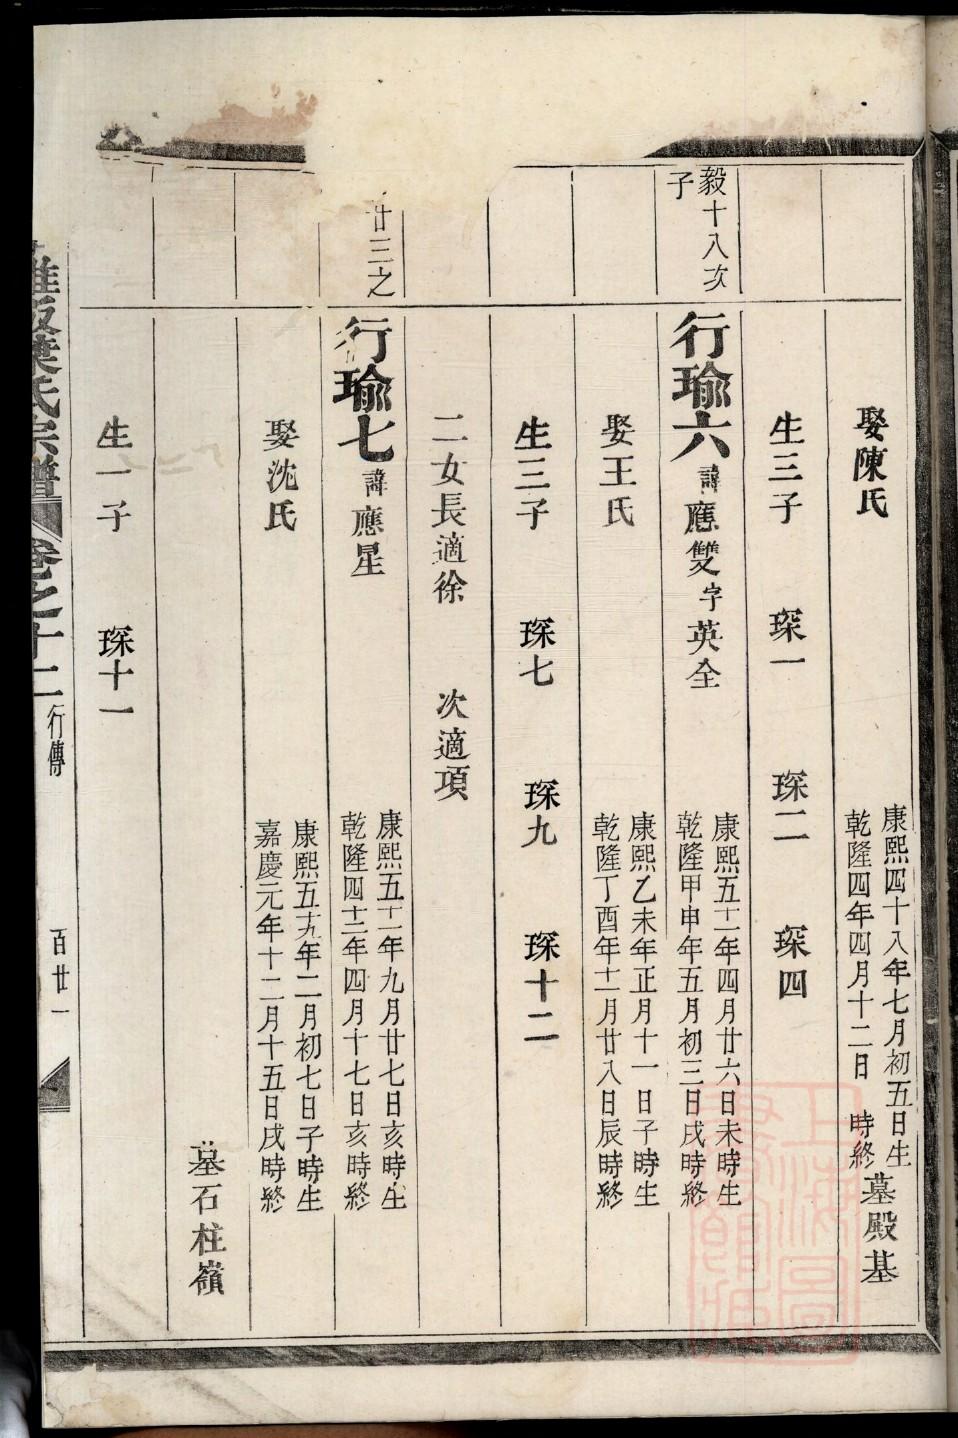 娶陳氏
康熙四十八年七月初五日生
乾隆四年四月十二日　時終
墓殿基
生三子　琛一　琛二　琛四
毅十八次
子
行瑜六　諱應雙字英全
康熙五十一年四月廿六日未時生
乾隆甲申年五月初三日戌時終
娶王氏
康熙乙未年正月十一日子時生
乾隆丁酉年十一月廿八日辰時終
生三子　琛七　琛九　琛十二
二女長適徐　次適項
廿三之
行瑜七　諱應星
康熙五十一年九月廿七日亥時生
乾隆四十二年四月十七日亥時終
娶沈氏
康熙五十九年二月初七日子時生
嘉慶元年十二月十五日戌時終
墓石柱嶺
生一子　琛十一
葉氏宗譜　卷之十二　行傳　百廿一
上海圖書館藏